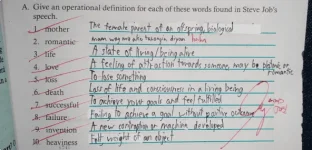 A. Give an operational definition for each of these words found in Steve Job's
speech.
1. mother The female parent of an offspring, biological
2. romantic
3. life A state of living/being alive
4. love A feeling of attraction towards someone, may be platonic or romantic
5. loss To lose something
6. death Loss of life and consciousness in a living being
7. successful To achieve your goals and feel fulfilled
8. failure Failing to achieve a goal without positive outcome
9. invention A new contraption or machine developed
10. heaviness Felt weight of an object